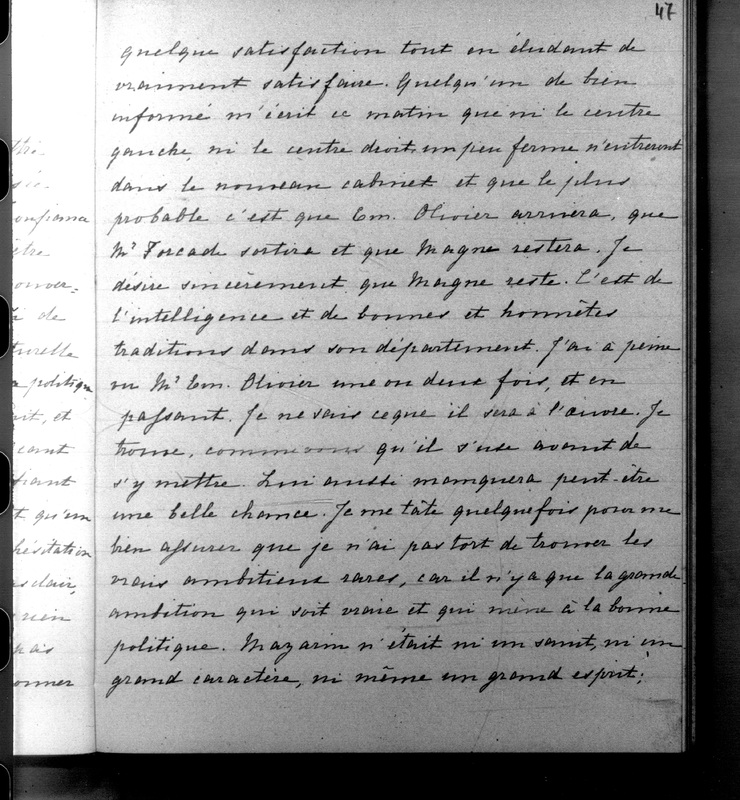 47
quelque satisfaction tout en éludant de
vraiment satisfaire. Quelqu'un de bien
informé m'écrit ce matin que ni le centre
gauche, ni le centre droit un peu ferme n'entreront
dans le nouveau cabinet et que le plus
probable c'est que Em. Olivier arrivera, que
Mr Forcade sortira et que Magne restera. Je
désire sincèrement que Magne reste. C'est de
l'intelligence et de bonnes et honnêtes
traditions dans son département. J'ai à peine
vu Mr Em. Olivier une ou deux fois, et en
passant. Je ne sais ce que il sera à l'œuvre. Je
trouve, comme vous qu'il s'use avant de
s'y mettre. Lui aussi manquera peut-être
une belle chance. Je me tâte quelquefois pour me
bien assurer que je n'ai pas tort de trouver les
vrais ambitieux rares, car il n'y a que la grande
ambition qui soit vraie et qui mène à la bonne
politique. Mazarin n'était ni un saint, ni un
grand caractère, ni même un grand esprit;
onfiance
être
ouver-
de
turelle
politique
et
qu'un
hésitation
clair,
rien
onner